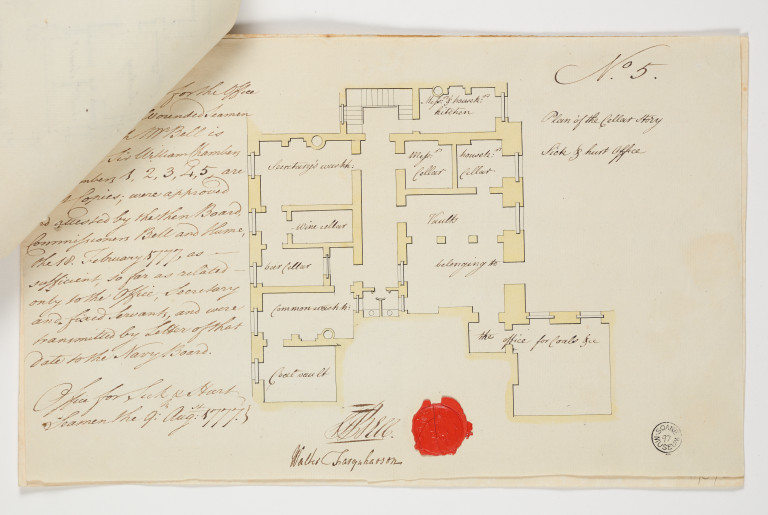 for the Office
Wounded Seamen
Mr Bell is
Sir William Chambers
1, 2, 3, 4, 5, are
Copies; were approved
and attested by the then Board
Commissioners Bell and Hume,
the 18. February 1777, as
sufficient, so far as related
only to the Office, Secretary
and fixed Servants, and were
transmitted by Letter of that
Date to the Navy Board.
Office for Sick & Hurt
Seamen the 9th Augst 1777.
No. 5.
Plan of the Cellar Story
Sick & hurt Office
Messrs & housekrs
kitchen
Secretary's wash h:
Messrs
Cellar
housekrs
Cellar
Wine cellar
Vaults
belonging to
beer Cellar
Common wash h:
the office for Coals &c
Coal vault
Bell.
Walter Farquharson
SOANE MUSEUM